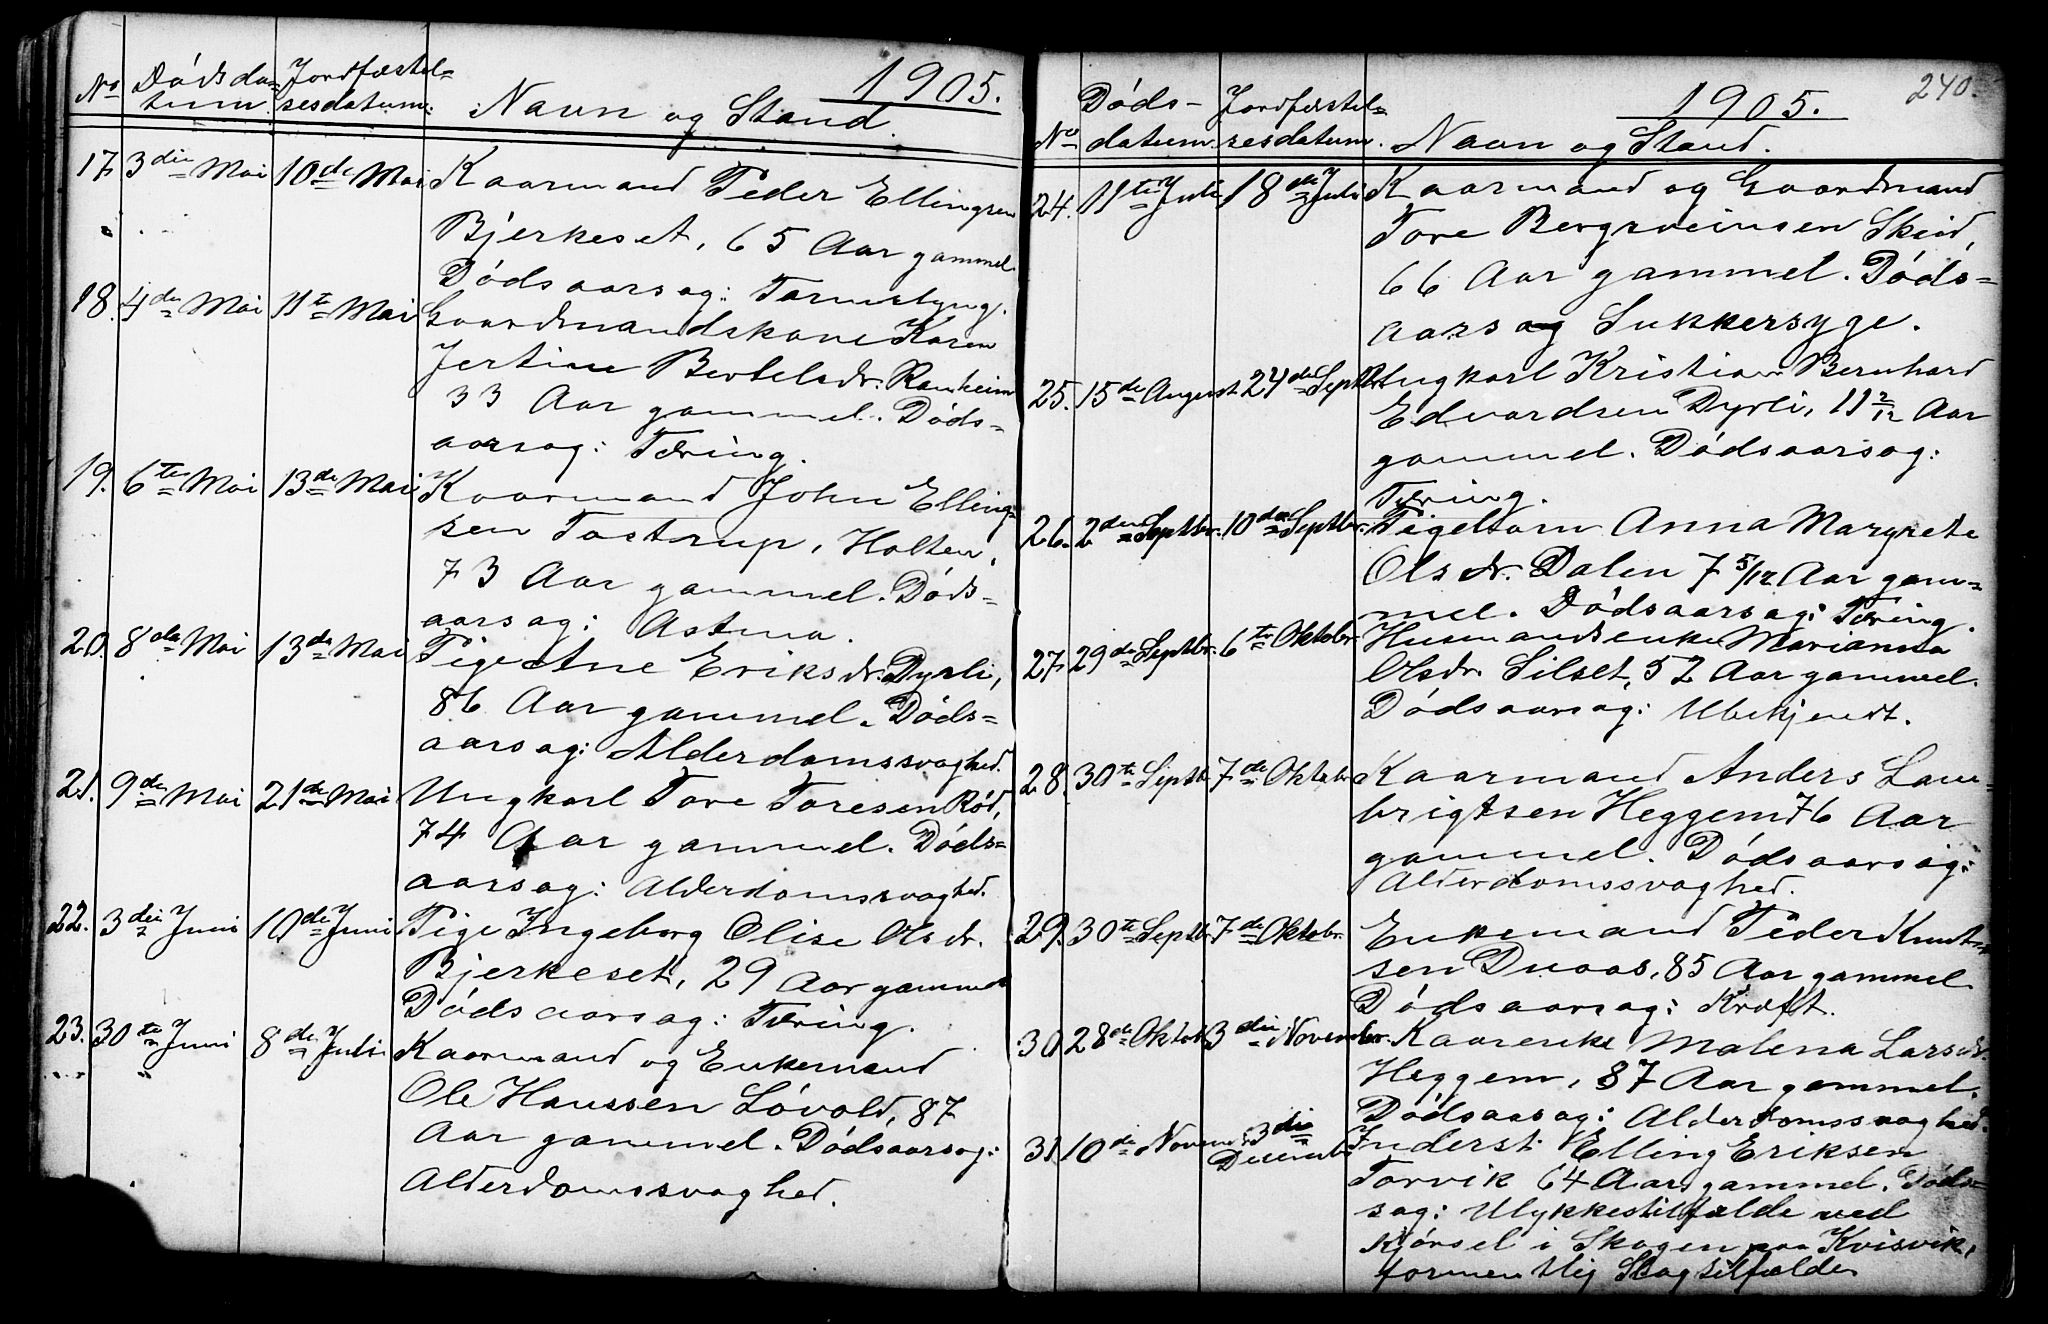 1905.
No Dødsda- Jordfæstel-
tum. sesdatum. Navn og Stand.
17 3die Mai 10de Mai Kaarmand Peder Ellingsen
Bjerkeset, 65 Aar gammel
Dødsaarsag: Tarmslyng.
18. 4de Mai 11te Mai Gaardmandskone Karen
Jertine Bertelsdr. Ranheim
33 Aar gammel. Døds-
aarsag: Tæring.
19. 6te Mai 13de Mai Kaarmand John Elling-
sen Tostrup, Holten,
73 Aar gammel. Døds-
aarsag: Astma.
20. 8de Mai 13de Mai Pige Ane Eriksdr. Dyrli,
86 Aar gammel. Døds-
aarsag: Alderdomssvaghed.
21. 9de Mai 21de Mai Ungkarl Tore Toresen Rød,
74 Aar gammel. Døds-
aarsag: Alderdomssvaghed.
22. 3die Juni 10de Juni Pige Ingeborg Olise Olsdr.
Bjerkeset, 29 Aar gammel
Dødsaarsag: Tæring.
23. 30te Juni 8de Juli Kaarmand og Enkemand
Ole Hanssen Løvold, 87
Aar gammel. Dødsaarsag:
Alderdomssvaghed.
240.
1905.
Døds- Jordfæstel-
No datum. sesdatum. Navn og Stand.
24. 11te Juli 18de Juli Kaarmand og Gaardmand
Tore Bergsveinsen Skeid,
66 Aar gammel. Døds-
aarsag Sukkersyge.
25. 15de August 24de Septbr. Ungkarl Kristian Bernhard
Edvardsen Dyrli, 11 2/12 Aar
gammel. Dødsaarsag:
Tæring.
26. 2den Septbr. 10de Septbr. Pigebarn Anna Margrete
Olsdr. Dalen 7 5/12 Aar gam-
mel. Dødsaarsag: Tæring.
27. 29de Septbr. 6te Oktobr. Husmandsenke Marianna
Olsdr. Silset, 52 Aar gammel.
Dødsaarsag: Ubekjendt.
28. 30te Septbr 7de Oktobr Kaarmand Anders Lam-
brigtsen Heggem 76 Aar
gammel. Dødsaarsag:
Alderdomssvaghed.
29. 30te Septbr. 7de Oktobr. Enkemand Peder Knut-
sen Duaas, 85 Aar gammel
Dødsaarsag: Kræft.
30. 28de Oktobr 3die November. Kaarenke Malena Larsdr.
Heggem, 87 Aar gammel.
Dødsaarsag: Alderdomssvaghed.
31. 10de Novemb. 3die
Decembr. Inderst Elling Eriksen
Torvik 64 Aar gammel. Døds-
sag: Ulykkestilfælde ved
Kjørsel i Skogen paa Kvisvik,
formentlig Slagtilfælde